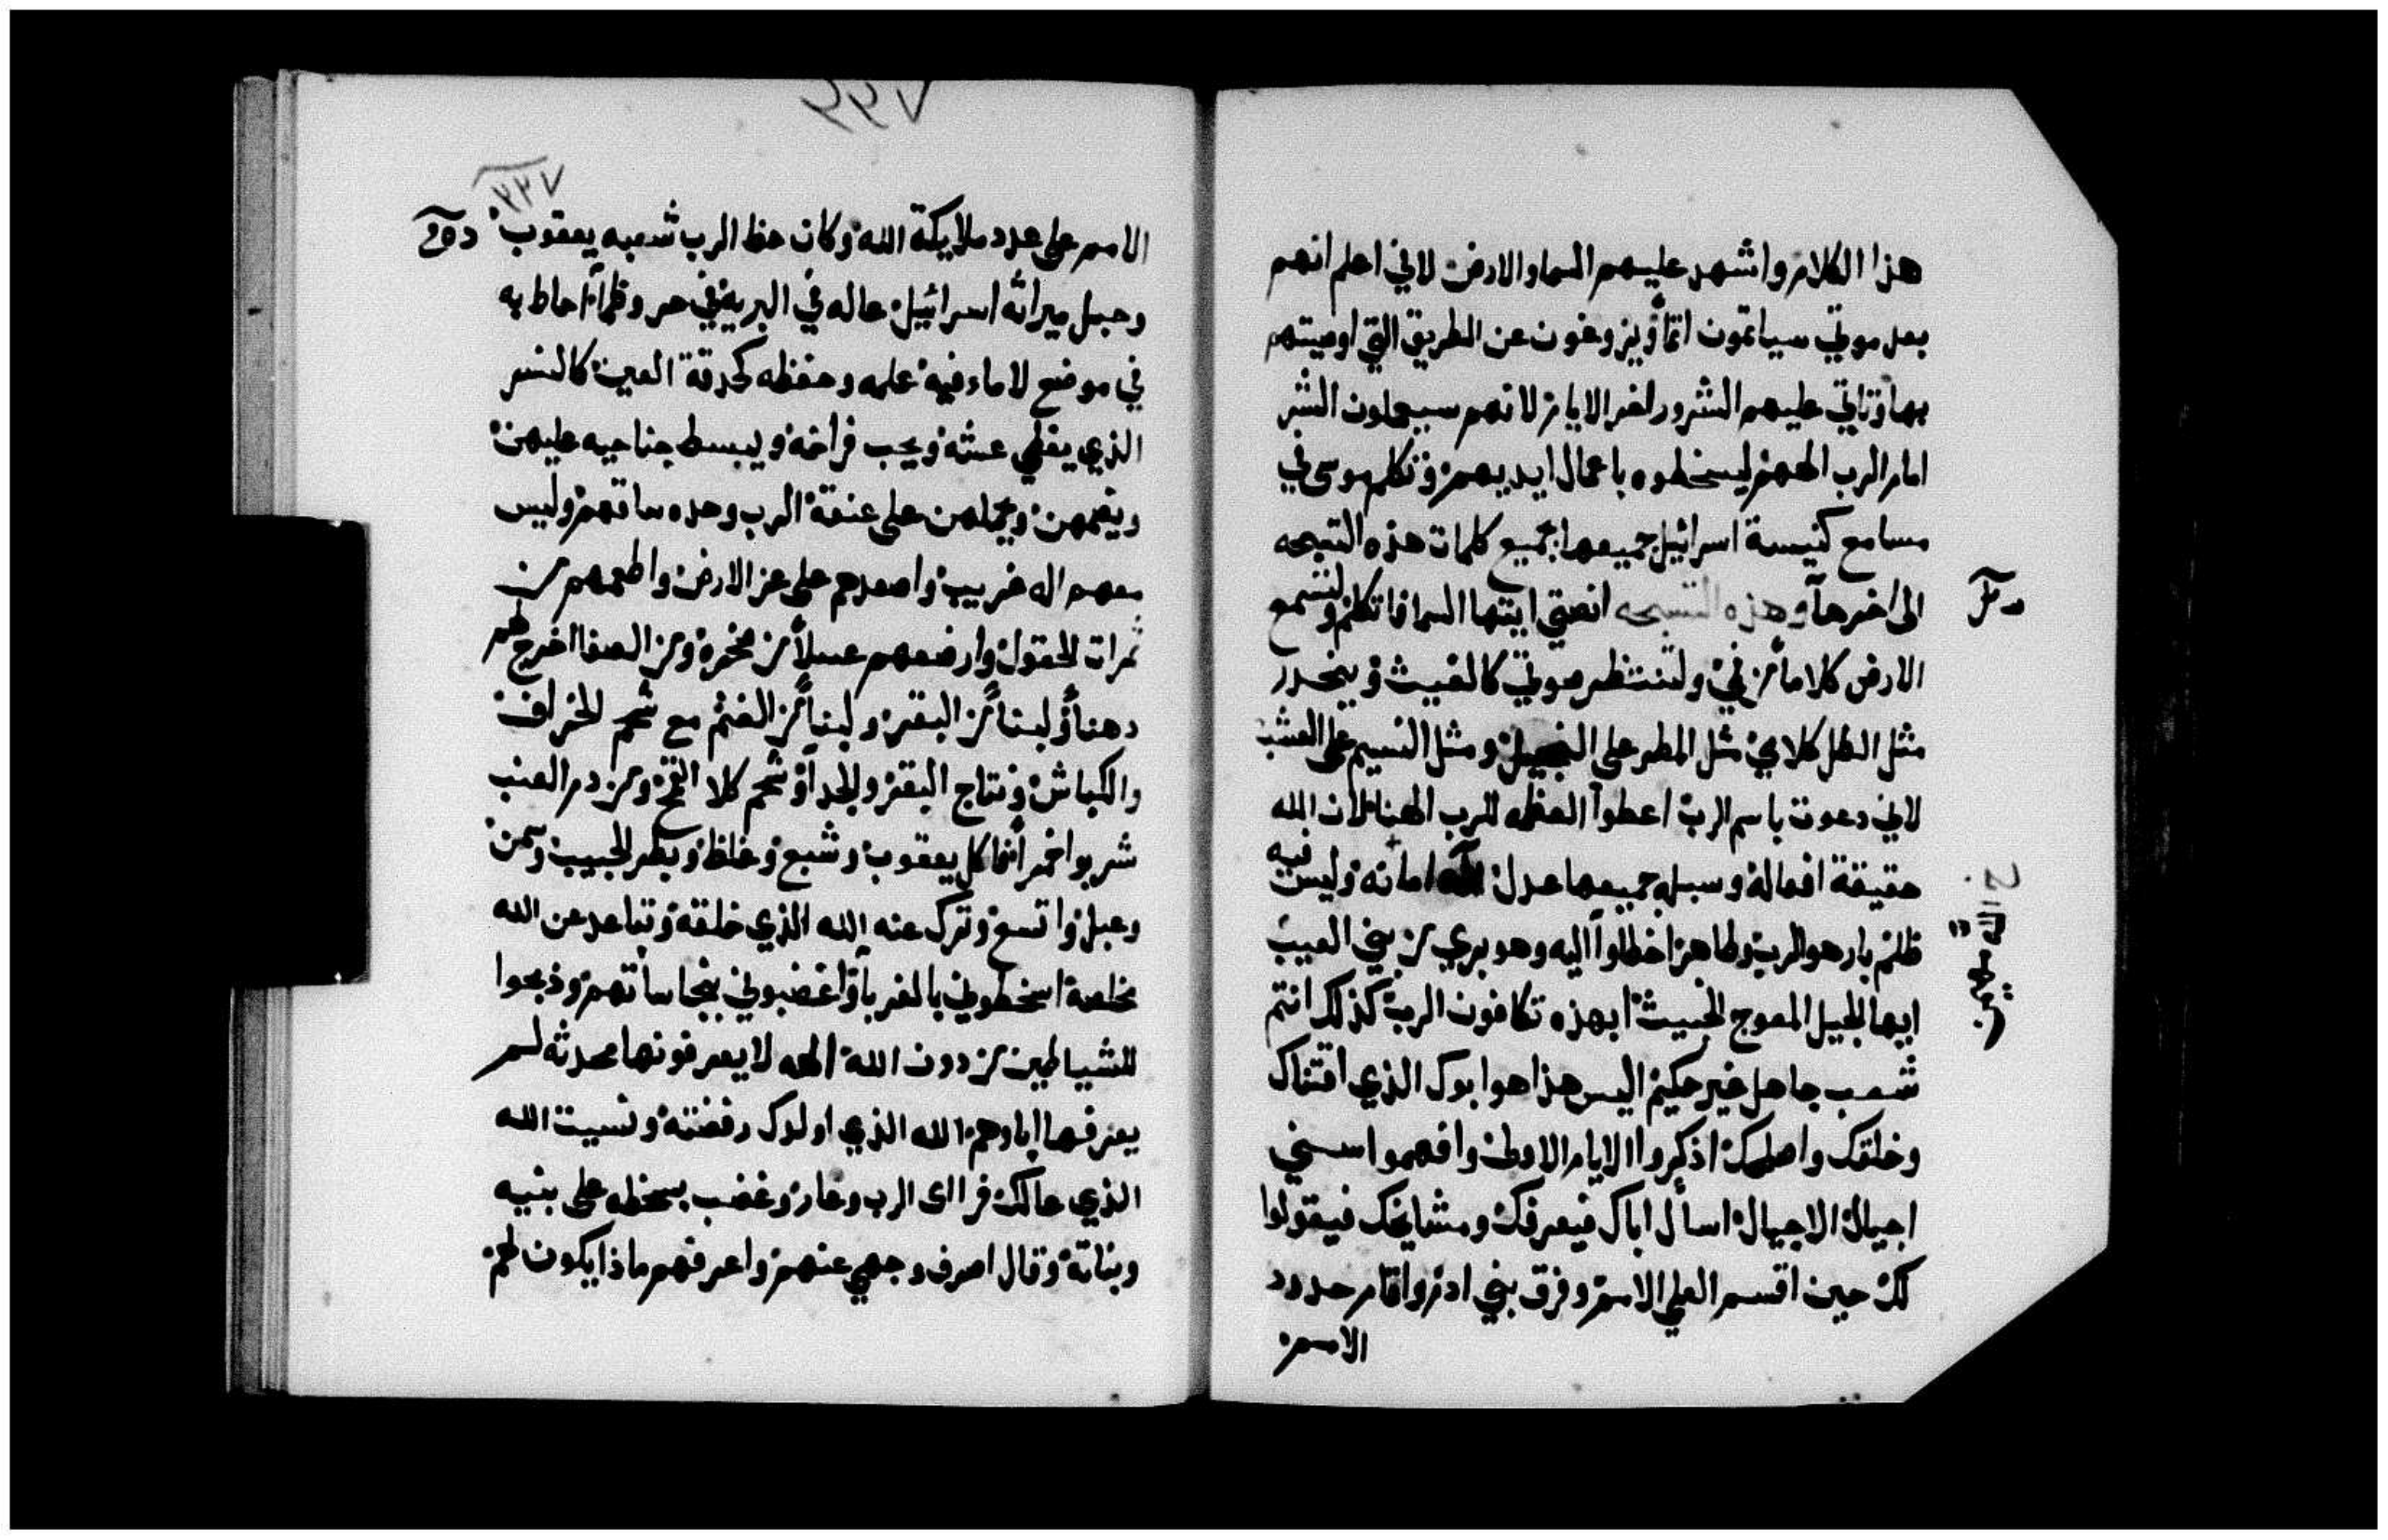 هذا الكلام واشهد عليهم السما والارض لاني اعلم انهم
بعد موتي سياتمون اثماً ويزوغون عن الطريق التي اوصيتهم
بها وتاتي عليهم الشرور اخر الايام لانهم سيعملون الشر
امام الرب الههم ليسخطوه باعمال ايديهم وتكلم موسى في
مسامع كنيسة اسرائيل جميعها بجميع كلمات هذه التسبحه
الى اخرها وهذه التسبحه انصتي ايتها السما فاتكلم ولتسمع
الارض كلاماً من في ولتنتظر صوتي كالغيث وينحدر
مثل الطل كلامي مثل المطر على النجيل ومثل النسيم على العشب
لاني دعوت باسم الرب اعطوا العظمه للرب الهنا لان الله
حقيقة افعاله وسبله جميعها عدل الله امانه وليس فيه
ظلم بار هو الرب وطاهر اخطاوا اليه وهو بري من بني العيب
ايها الجيل المعوج الخبيث ابهذه تكافون الرب كذلك انتم
شعب جاهل غير حكيم اليس هذا هو ابوك الذي اقتناك
وخلقك واصلحك اذكروا الايام الاولى وافهموا سني
اجيال الاجيال اسأل اباك فيعرفك ومشايخك فيقولوا
لك حين اقسم العلي الامم وفرق بني ادم واقام حدود
الامم
٧٣٣
الامم على عدد ملايكة الله وكان حظ الرب شعبه يعقوب
وحبل ميراثه اسرائيل عاله في البرية في حر وظمأ احاط به
في موضع لا ماء فيه علمه وحفظه كحدقة العين كالنسر
الذي يغطي عشه ويحب فراخه ويبسط جناحيه عليهن
ويضمهن ويحملهن على عنقه الرب وحده ساقهم وليس
معهم اله غريب واصعدهم على عز الارض واطعمهم من
ثمرات الحقول وارضعهم عسلاً من صخرة ومن الصفا اخرج لهم
دهناً ولبناً من البقر ولبناً من الغنم مع شحم الخراف
والكباش ونتاج البقر والجدا وشحم كلا القمح ومن دم العنب
شربوا خمراً فاكل يعقوب وشبع وغلظ وبطر الحبيب وسمن
وعبل واتسع وترك عنه الله الذي خلقه وتباعد عن الله
مخلصه اسخطوني بالغربا واغضبوني بنجاساتهم وذبحوا
للشياطين من دون الله الهه لا يعرفونها محدثه لم
يعرفها اباوهم الله الذي اولدك رفضته ونسيت الله
الذي عالك فراى الرب وغار وغضب بسخطه على بنيه
وبناته وقال اصرف وجهي عنهم واعرفهم ماذا يكون لهم